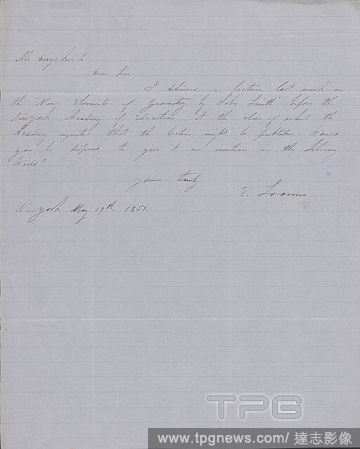 Dear Sir
I delivered a lecture last week on
the New Elements of Geometry by Seba Smith before the
New York Academy of Education at the close of which the
Academy requested that the lecture might be published. Would
you be disposed to give it an insertion in the Literary
World"
yours truly
E. Loomis
New York May 19th 1851.
TPG
www.tpgnews.com/ 達志影像